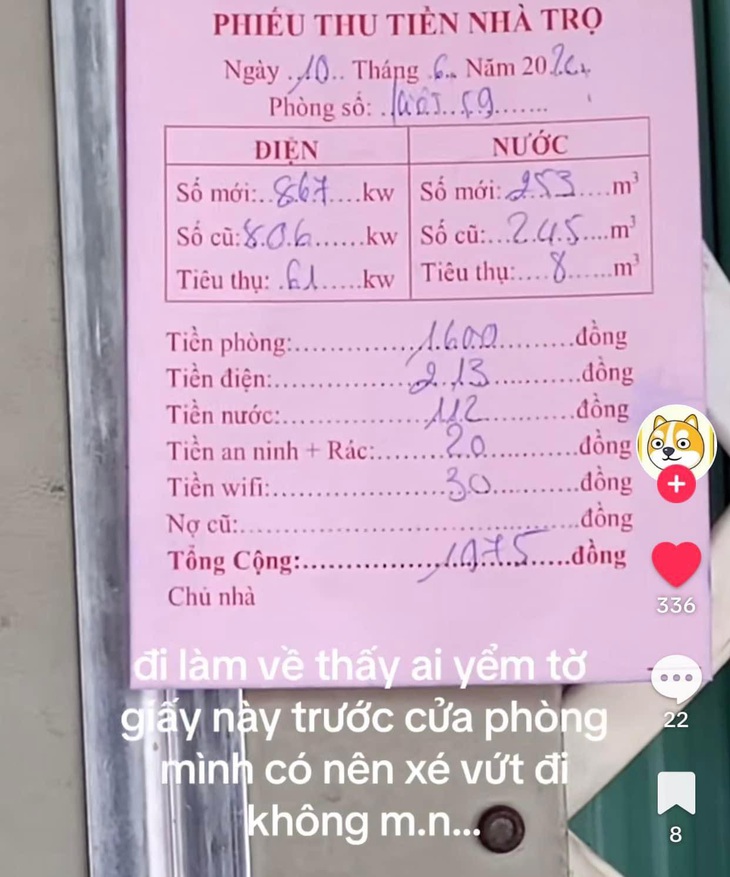 PHIẾU THU TIỀN NHÀ TRỌ
Ngày 10 Tháng 6 Năm 20
Phòng số: 59
ĐIỆN NƯỚC
Số mới: 867 kw Số mới: 253 m³
Số cũ: 806 kw Số cũ: 245 m³
Tiêu thụ: 61 kw Tiêu thụ: 8 m³
Tiền phòng: 1.600 đồng
Tiền điện: 213 đồng
Tiền nước: 112 đồng
Tiền an ninh + Rác: 20 đồng
Tiền wifi: 30 đồng
Nợ cũ: đồng
Tổng Cộng: 1975 đồng
Chủ nhà
336
đi làm về thấy ai yểm tờ
giấy này trước cửa phòng
mình có nên xé vứt đi
không m.n...
22
8